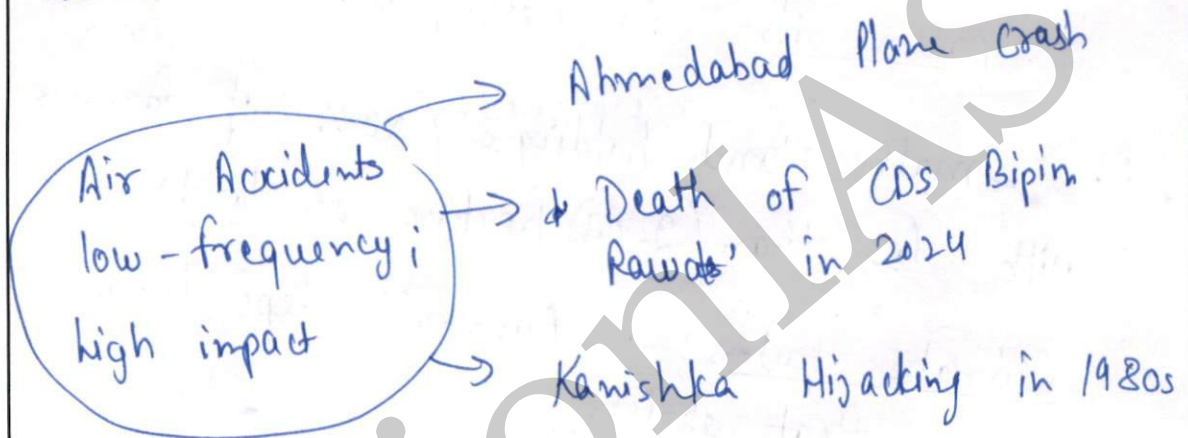 Air Accidents
low-frequency;
high impact
Ahmedabad Plane crash
Death of CDS Bipin
Rawat' in 2024
Kanishka Hijacking in 1980s
onIAS